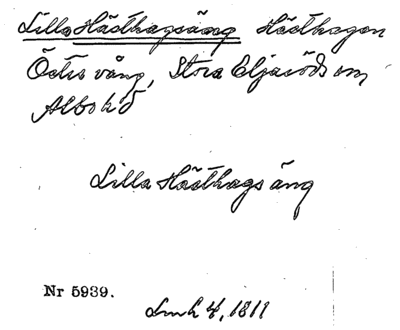 Lilla Hästhagsäng Hästhagen
Östis vång, Stora Eljaröds sn
Albo hd
Lilla Hästhags äng
Nr 5939.
Lmh 4, 1811